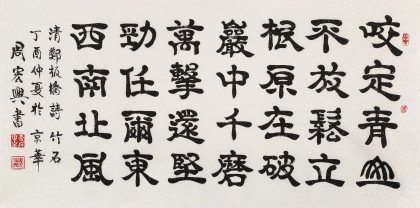 咬定青山
不放鬆立
根原在破
巖中千磨
萬擊還堅
勁任爾東
西南北風
清鄭板橋詩竹石
丁酉仲夏於京華
周宏興書